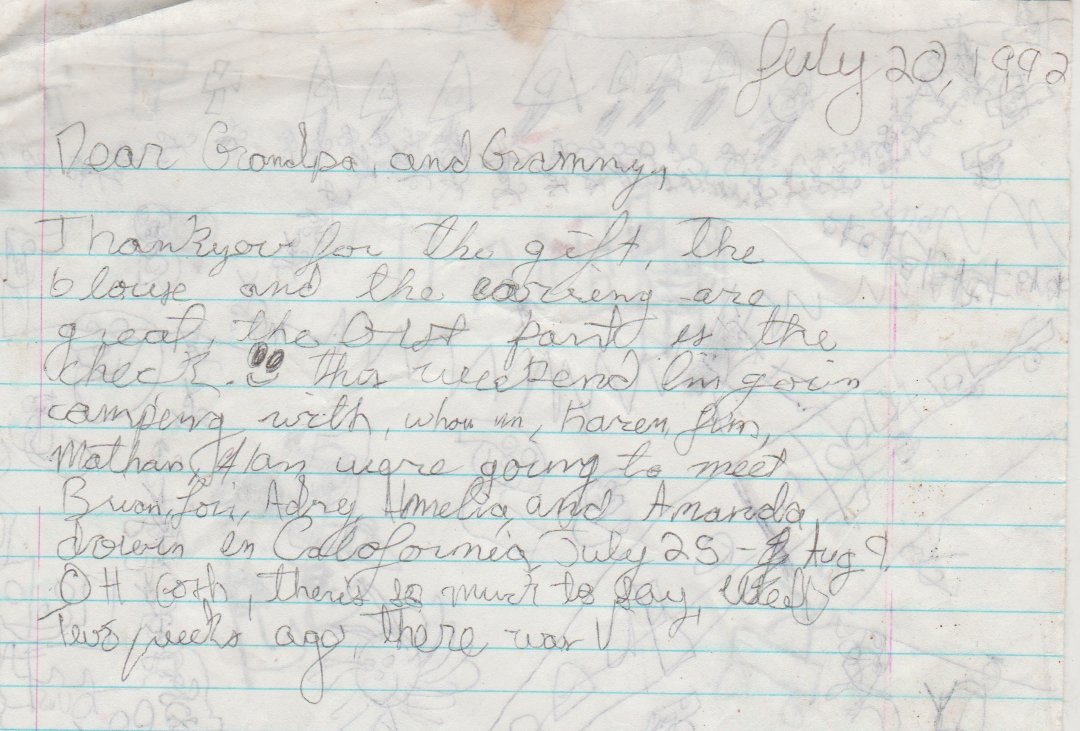 July 20, 1992
Dear Grandpa, and Grammy,
Thankyou for the gift, The
blouse and the earring are
great, the B-1st part is the
check. This weekend I'm goin
camping with, whou un, Karen, Jim,
Mathan, Alan were going to meet
Brian, Lori, Adrey, Ammelia, and Amanda,
down in Caloforniça, July 25 - Aug 9,
OH Gosh, there's so much to say, Well
Two weeks ago, there was